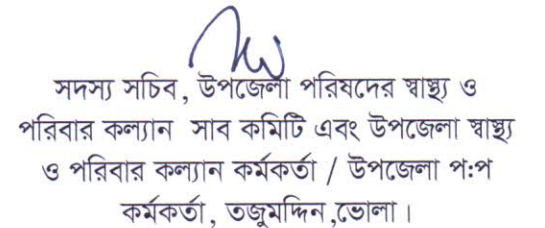 সদস্য সচিব, উপজেলা পরিষদের স্বাস্থ্য ও
পরিবার কল্যান সাব কমিটি এবং উপজেলা স্বাস্থ্য
ও পরিবার কল্যান কর্মকর্তা / উপজেলা প:প
কর্মকর্তা, তজুমদ্দিন,ভোলা।